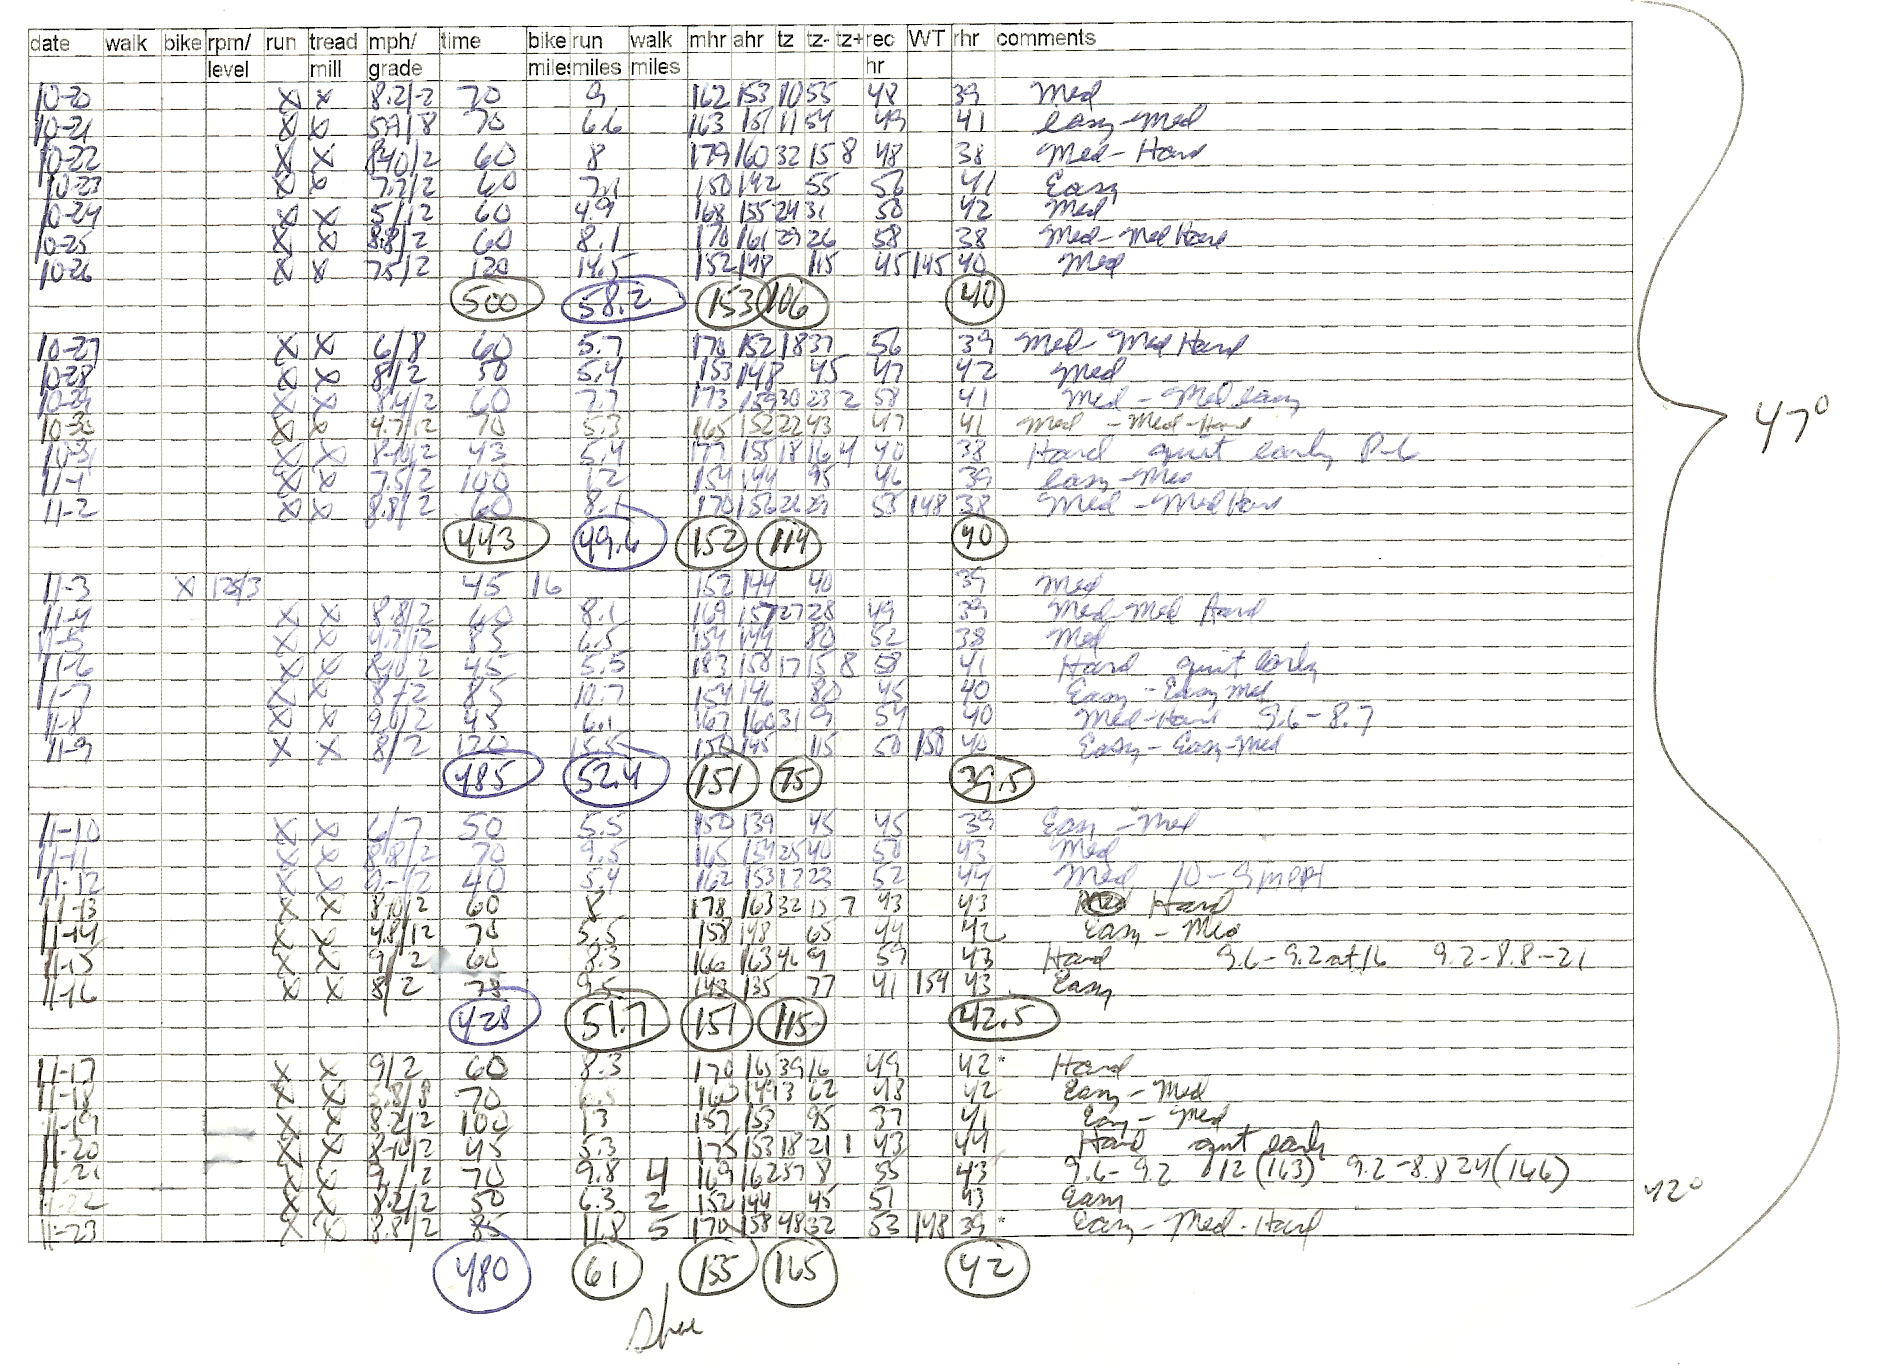 date walk bike rpm/ run tread mph/ time bike run walk mhr ahr tz tz- tz+ rec WT rhr comments
level mill grade miles miles miles hr
10-20 X X 8.2/2 70 9 162 153 10 55 48 39 Med
10-21 X X 5.9/8 70 6.6 163 151 11 54 49 41 easy-med
10-22 X X 8-10/2 60 8 179 160 32 15 8 48 38 Med-Hard
10-23 X X 7.7/2 60 7.1 150 142 55 56 41 Easy
10-24 X X 5/12 60 4.9 168 155 24 31 50 42 Med
10-25 X X 8.8/2 60 8.1 170 161 29 26 58 38 Med-Med Hard
10-26 X X 7.5/2 120 14.5 152 148 115 45 145 40 Med
500 58.2 153 106 40
10-27 X X 6/8 60 5.7 170 152 18 37 56 39 Med-Med Hard
10-28 X X 8/2 50 5.4 153 148 45 47 42 Med
10-29 X X 8.4/2 60 7.7 173 159 30 23 2 58 41 Med-Med easy
10-30 X X 4.7/12 70 5.3 165 152 22 43 47 41 Med-Med-Hard
10-31 X X 8-10/2 43 5.4 177 155 18 16 4 40 38 Hard quit early P-6
11-1 X X 7.5/2 100 12 154 144 95 46 39 easy-Med
11-2 X X 8.8/2 60 8.1 170 156 26 29 53 148 38 Med-Med Hard
443 49.6 152 114 40
11-3 X 125/3 45 16 152 144 40 39 Med
11-4 X X 8.8/2 60 8.1 169 157 27 28 49 39 Med-Med Hard
11-5 X X 4.7/12 85 6.5 154 144 80 52 38 Med
11-6 X X 8-10/2 45 5.5 183 158 17 15 8 58 41 Hard quit early
11-7 X X 8/2 85 10.7 154 146 80 45 40 Easy-Easy med
11-8 X X 9.0/2 45 6.1 167 160 31 9 54 40 Med-Hard 9.6-8.7
11-9 X X 8/2 120 15.5 150 145 115 50 150 40 Easy-Easy-Med
485 52.4 151 75 39.5
11-10 X X 6/7 50 5.5 150 139 45 45 39 Easy-Med
11-11 X X 8.8/2 70 9.5 165 154 25 40 50 43 Med
11-12 X X 9-/2 40 5.4 162 153 17 23 52 44 Med 10-9 mph
11-13 X X 8-10/2 60 8 178 163 32 15 7 43 43 Hard
11-14 X X 4.8/12 70 5.5 158 148 65 44 42 Easy-Med
11-15 X X 9/2 60 8.3 166 163 46 9 59 43 Hard 9.6-9.2 at 16 9.2-8.8-21
11-16 X X 8/2 78 9.5 143 135 77 41 159 43 Easy
428 51.7 151 115 42.5
11-17 X X 9/2 60 8.3 170 165 39 16 49 42 Hard
11-18 X X 5.8/8 70 160 149 13 62 48 42 Easy-Med
11-19 X X 8.2/2 100 13 157 153 95 37 41 Easy-Med
11-20 X X 8-10/2 45 5.3 175 153 18 21 1 43 44 Hard quit early
11-21 X X 9/2 70 9.8 4 169 162 57 8 55 43 9.6-9.2 12 (163) 9.2-8.8 24 (166)
11-22 X X 8.2/2 50 6.3 2 152 144 45 51 43 Easy
11-23 X X 8.8/2 85 11.8 5 170 158 48 32 53 148 39 Easy-Med-Hard
480 61 155 165 42
47°
42°
Shoe